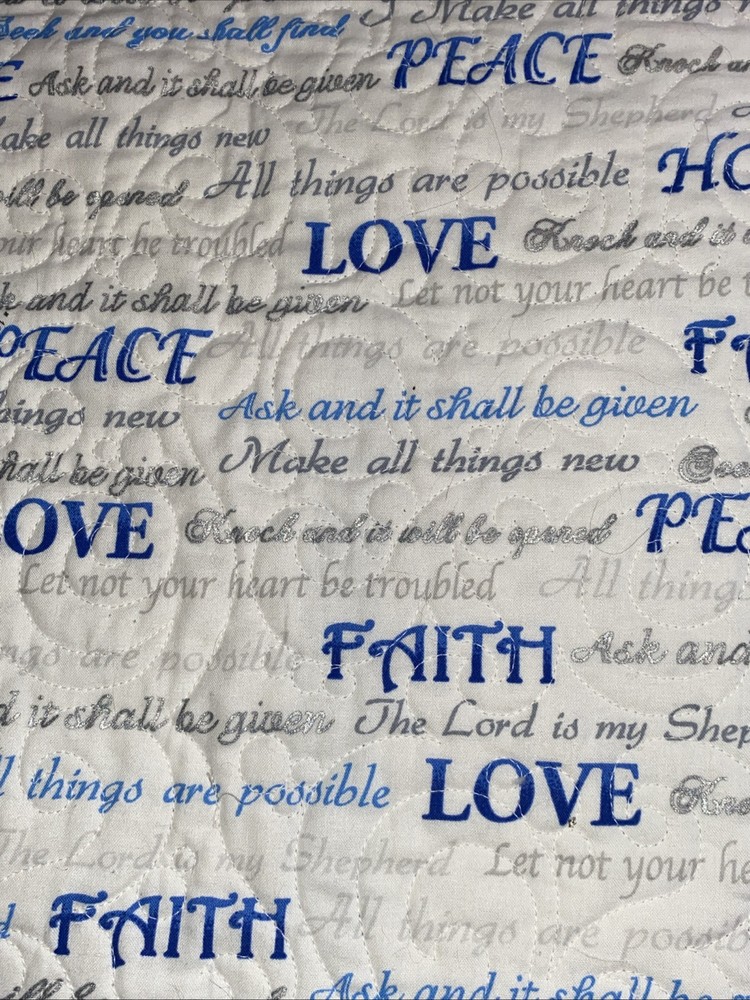 I Make all things
Seek and you shall find
Ask and it shall be given PEACE Knock
all things new The Lord is my Shepherd
will be opened All things are possible
your heart be troubled LOVE Knock and it
and it shall be given Let not your heart be
PEACE All things are possible
things new Ask and it shall be given
shall be given Make all things new
LOVE Knock and it will be opened
Let not your heart be troubled All things
are possible FAITH Ask and
it shall be given The Lord is my
things are possible LOVE
The Lord is my Shepherd Let not your
FAITH All things are
Ask and it shall be